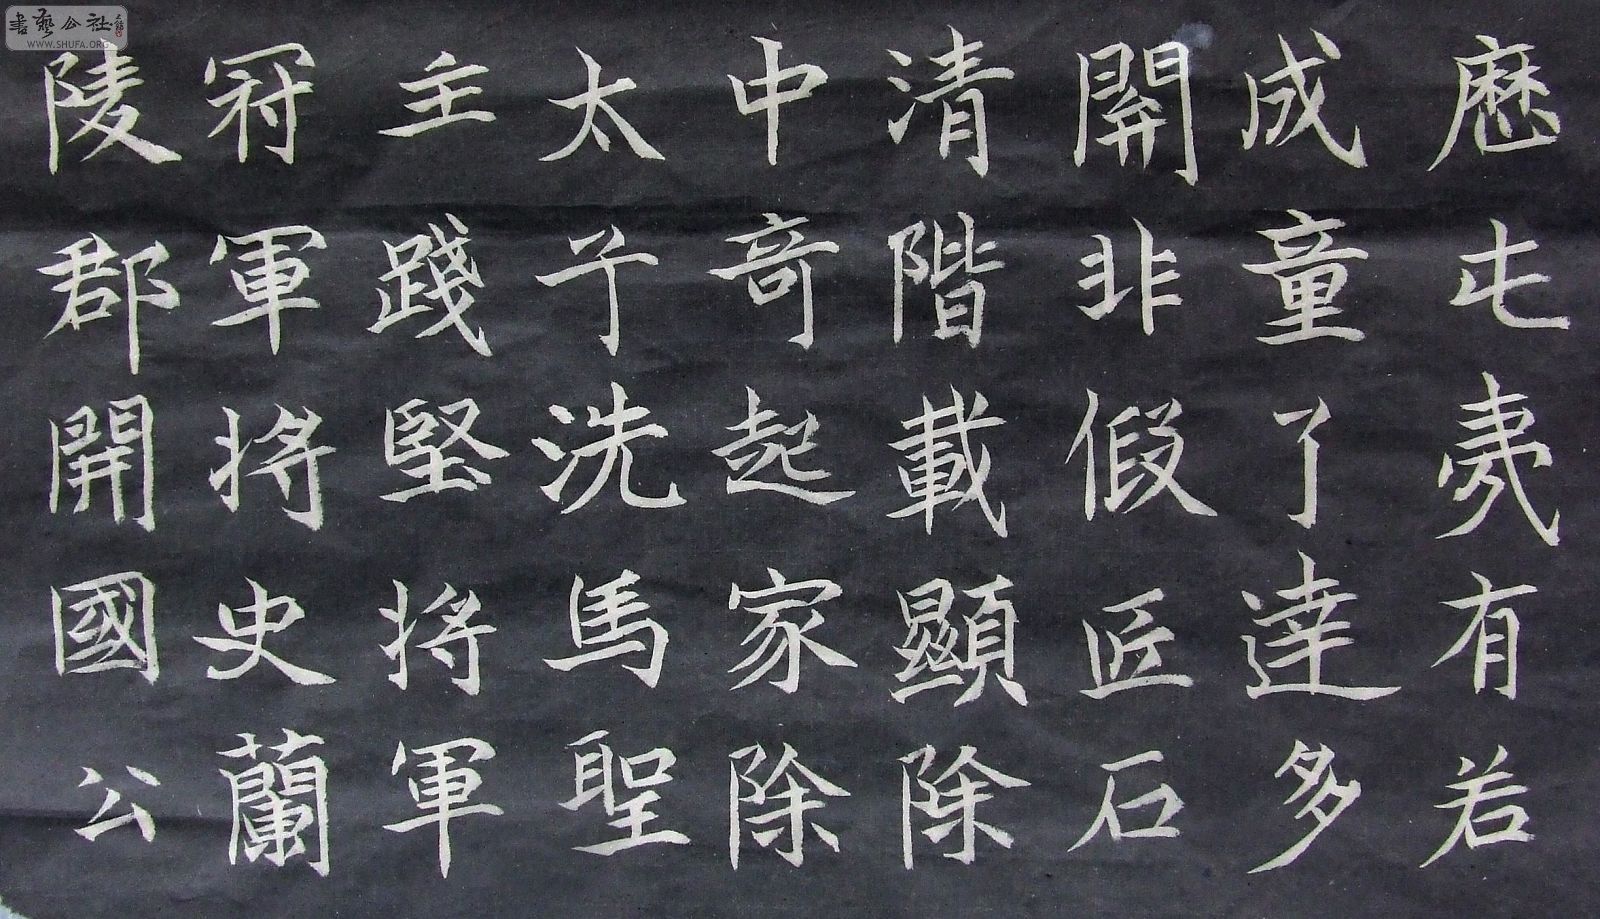 歷屯夷有若
成童了達多
開非假匠石
清階載顯除
中奇起家除
太子洗馬聖
主踐堅將軍
冠軍將史蘭
陵郡開國公
書藝公社
WWW.SHUFA.ORG